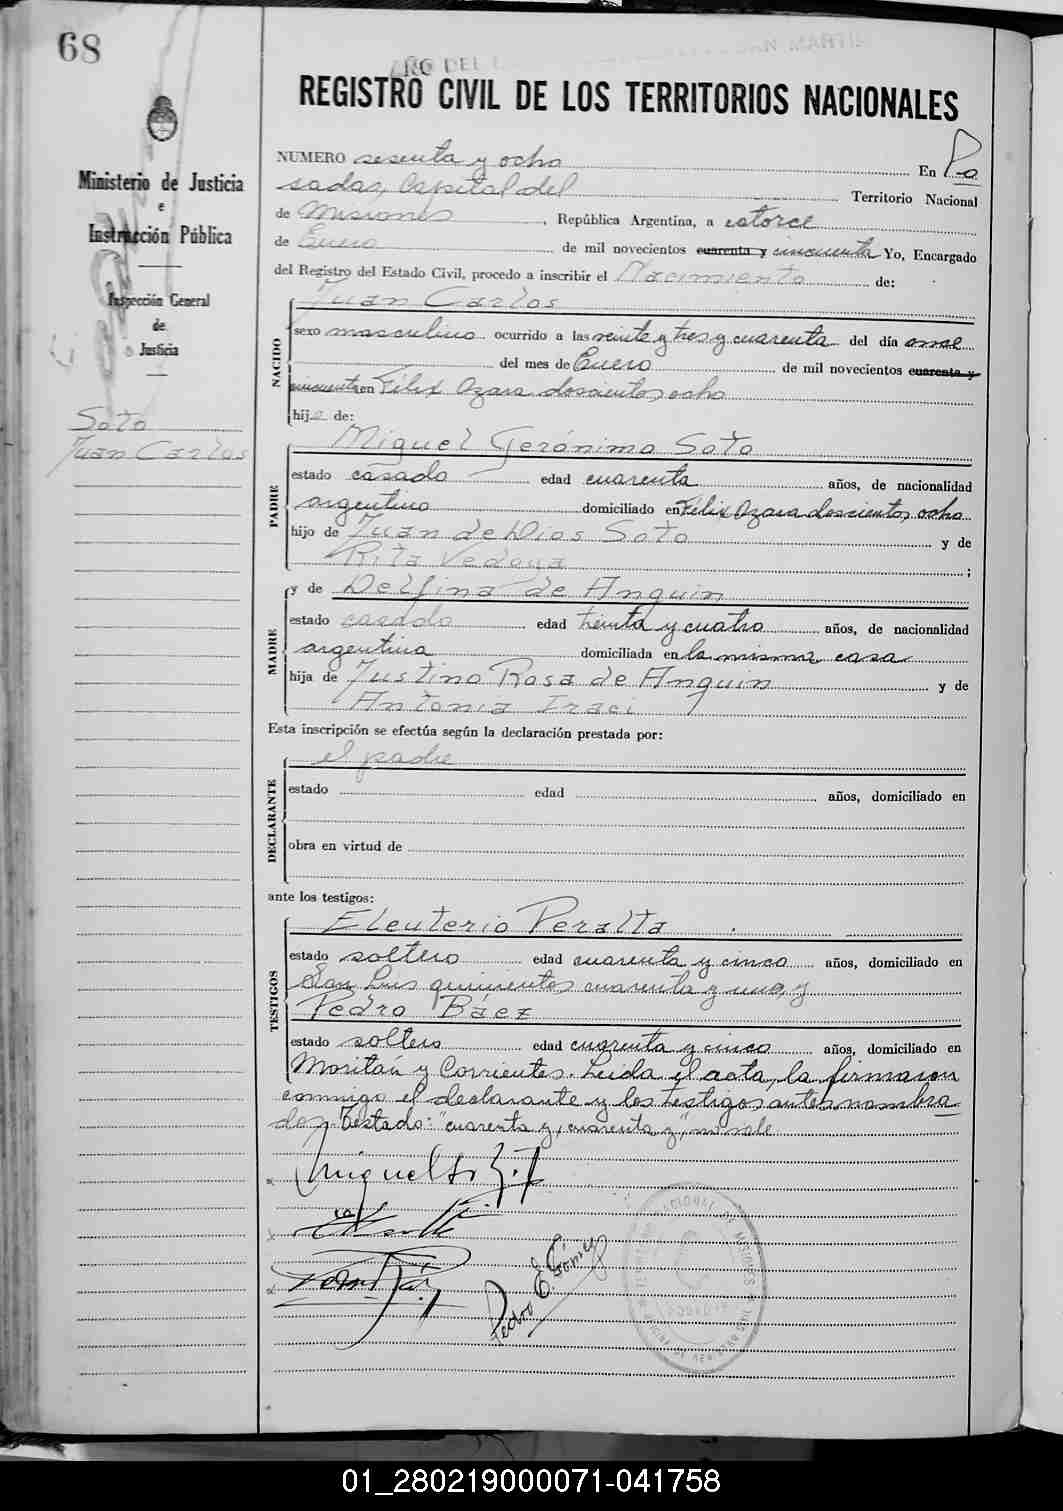 68
REGISTRO CIVIL DE LOS TERRITORIOS NACIONALES
Ministerio de Justicia
e
Instrucción Pública
Inspección General
de
Justicia
Soto
Juan Carlos
NUMERO sesenta y ocho En Po
sadas, Capital del Territorio Nacional
de Misiones, República Argentina, a catorce
de Enero de mil novecientos cuarenta y cincuenta Yo, Encargado
del Registro del Estado Civil, procedo a inscribir el Nacimiento de:
Juan Carlos
NACIDO
sexo masculino ocurrido a las veinte y tres y cuarenta del día once
del mes de Enero de mil novecientos cuarenta y
cincuenta en Félix Azara doscientos ocho
hijo de:
Miguel Gerónimo Soto
PADRE
estado casado edad cuarenta años, de nacionalidad
argentino domiciliado en Felix Azara doscientos ocho
hijo de Juan de Dios Soto y de
Rita Vedoya;
y de Delfina de Anguin
MADRE
estado casada edad treinta y cuatro años, de nacionalidad
argentina domiciliada en la misma casa
hija de Justino Rosa de Anguin y de
Antonia Iraci
Esta inscripción se efectúa según la declaración prestada por:
el padre
DECLARANTE
estado edad años, domiciliado en
obra en virtud de
ante los testigos:
Eleuterio Peralta
TESTIGOS
estado soltero edad cuarenta y cinco años, domiciliado en
San Luis quinientos cuarenta y uno, y
Pedro Báez
estado soltero edad cuarenta y cinco años, domiciliado en
Moritán y Corrientes. Leida el acta, la firmaron
conmigo el declarante y los testigos antes nombra
dos. Testado: "cuarenta y, cuarenta y," no vale
Pedro E. Gómez
01_280219000071-041758